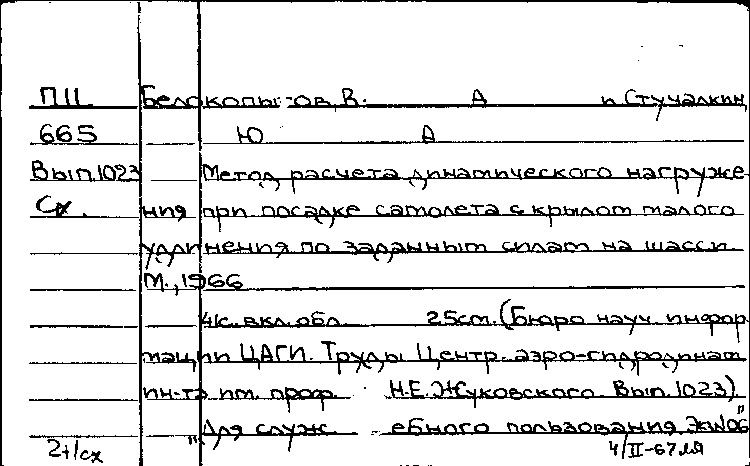 ПII Белокопытов, В. А и Стучалкин,
665 Ю А
Вып.1023 Метод расчета динамического нагруже-
Сх. ния при посадке самолета с крылом малого
удлинения по заданным силам на шасси.
М., 1966
4с. вкл. обл. 25см. (Бюро науч. информ
мации ЦАГИ. Труды Центр. аэро-гидродинам
ин-та им. проф. Н.Е. Жуковского. Вып. 1023).
"Для служ ебного пользования Экз №06"
2+1сх 4/II-67 ля